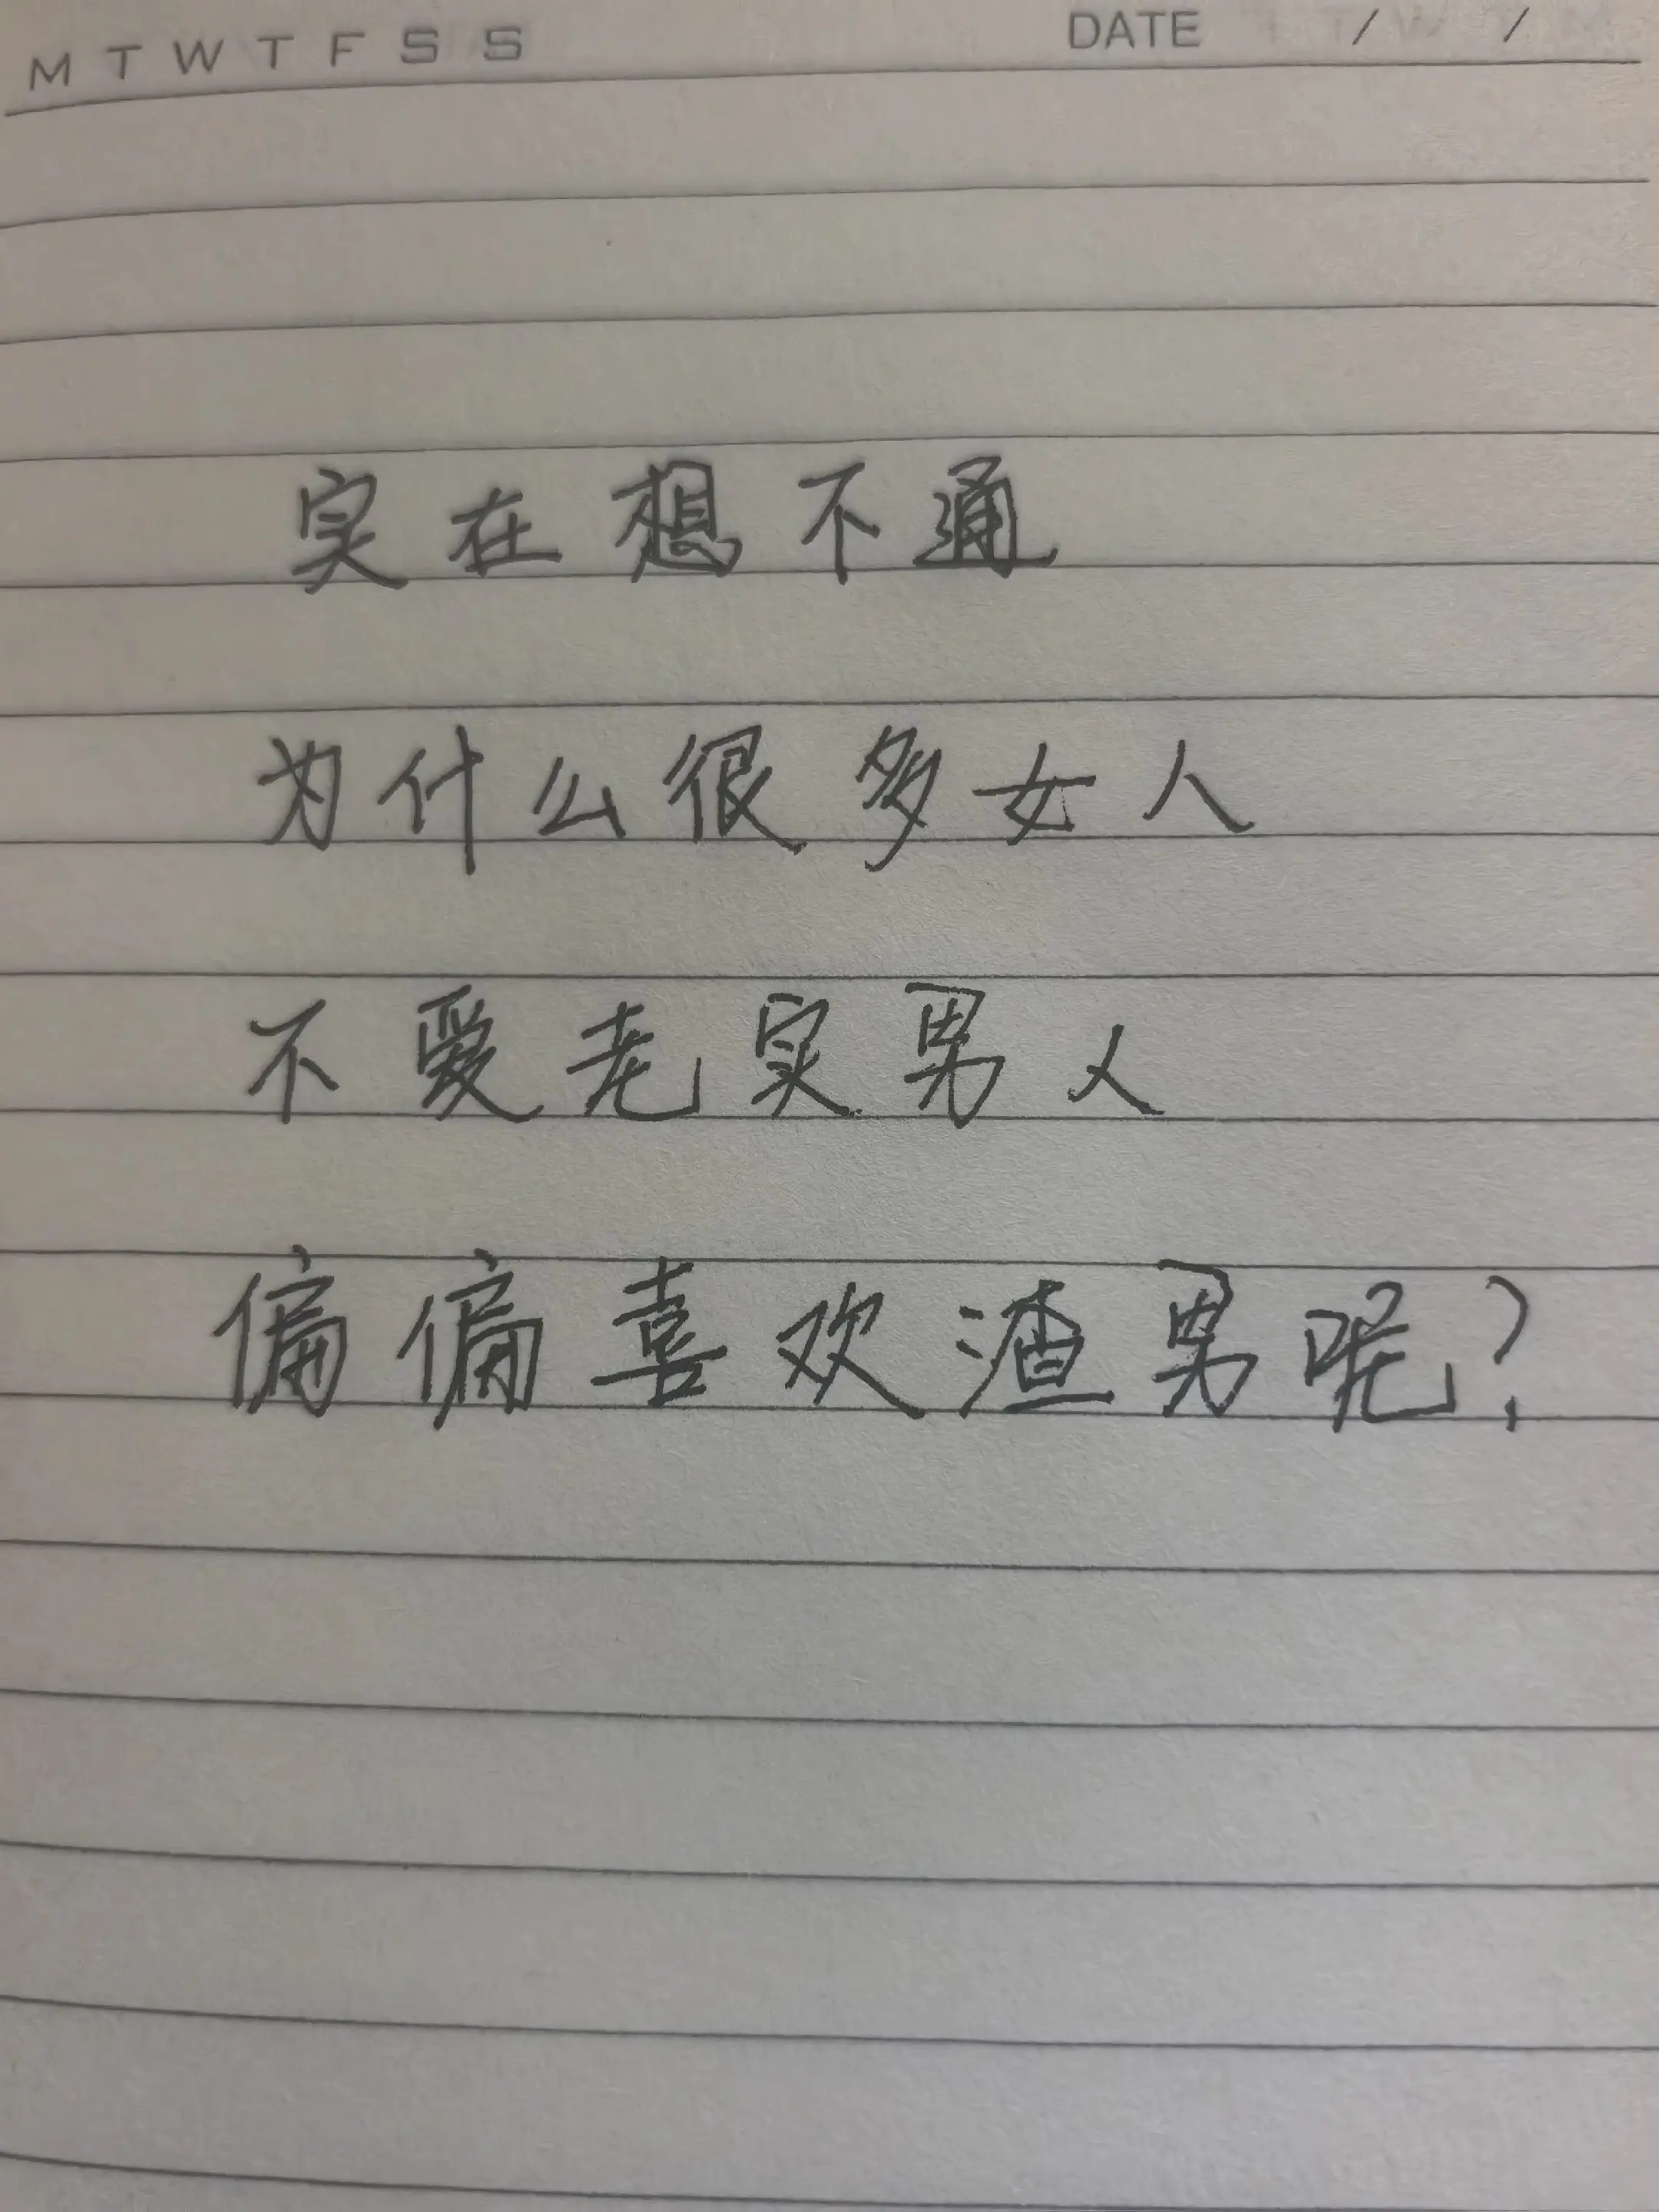 M T W T F S S DATE / /
实在想不通
为什么很多女人
不爱老实男人
偏偏喜欢渣男呢?